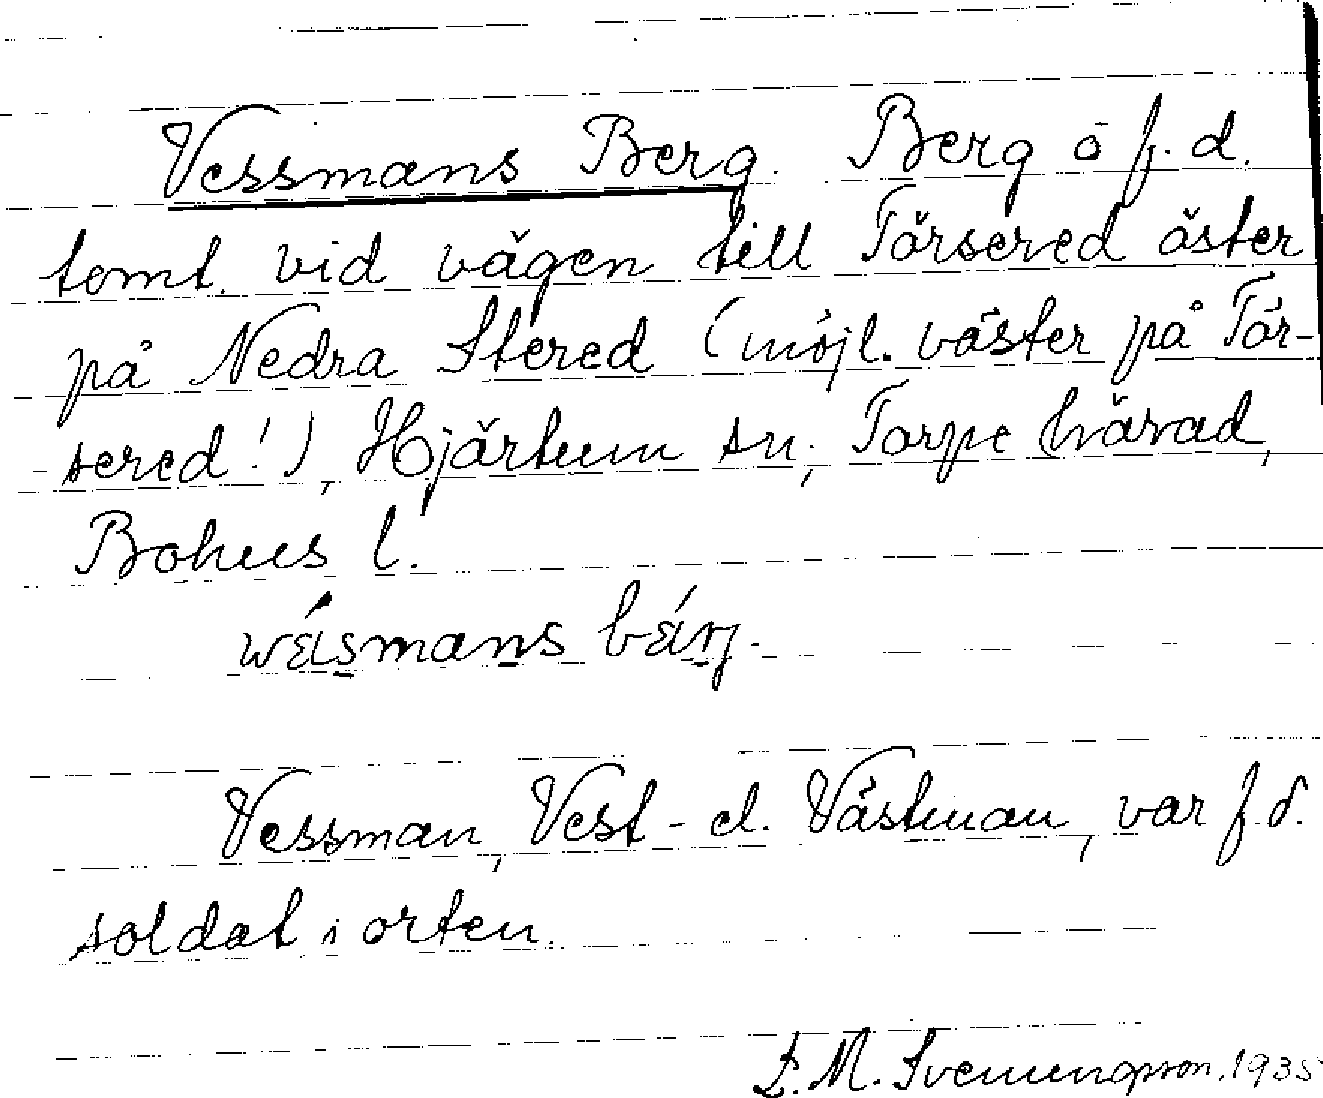 Vessmans Berg. Berg o f. d.
tomt. vid vägen till Törsered öster
på Nedra Stered (möjl. väster på Tör-
sered!), Hjärtum sn, Torpe härad,
Bohus l.
wéismans
Vessman, Vest- el. Västman, var f. d.
soldat i orten.
E. M. Svenungsson. 1935